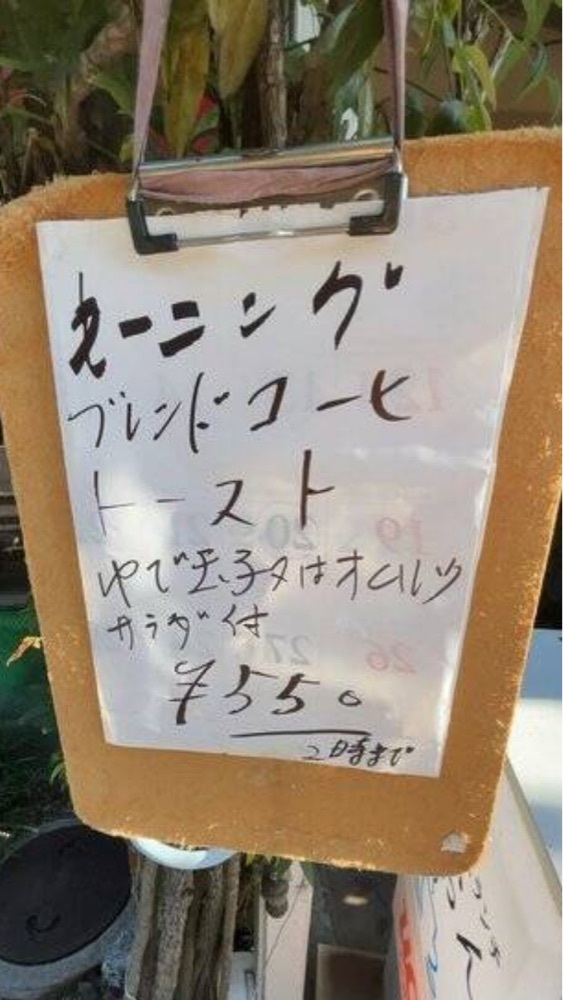 モーニング
ブレンドコーヒ
トースト
ゆで玉子又はオムレツ
サラダ付
¥550
2時まで
12
19
20
26
27